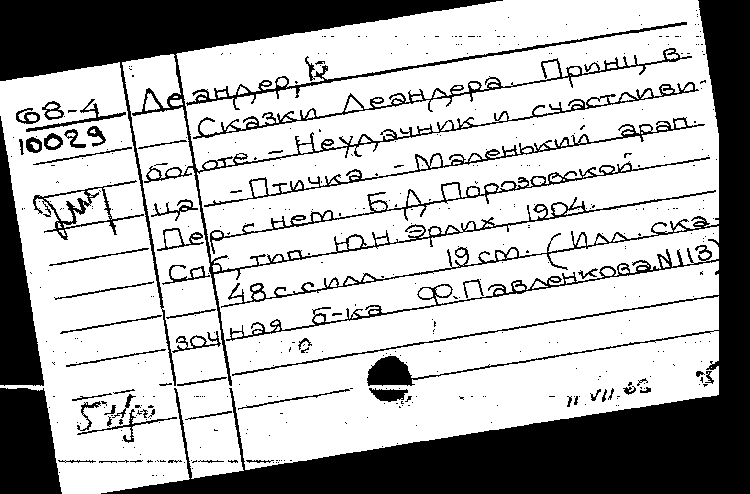 68-4
10029
Леандер, Р
Сказки Леандера. Принц в
болоте. – Неудачник и счастливи-
ца. – Птичка. – Маленький арап.
Пер. с нем. Б.Д. Порозовской.
Спб, тип. Ю.Н. Эрлих, 1904.
48 с. с илл. 19 см. (Илл. ска-
зочная б-ка Ф. Павленкова. N 113)
11 VII 68